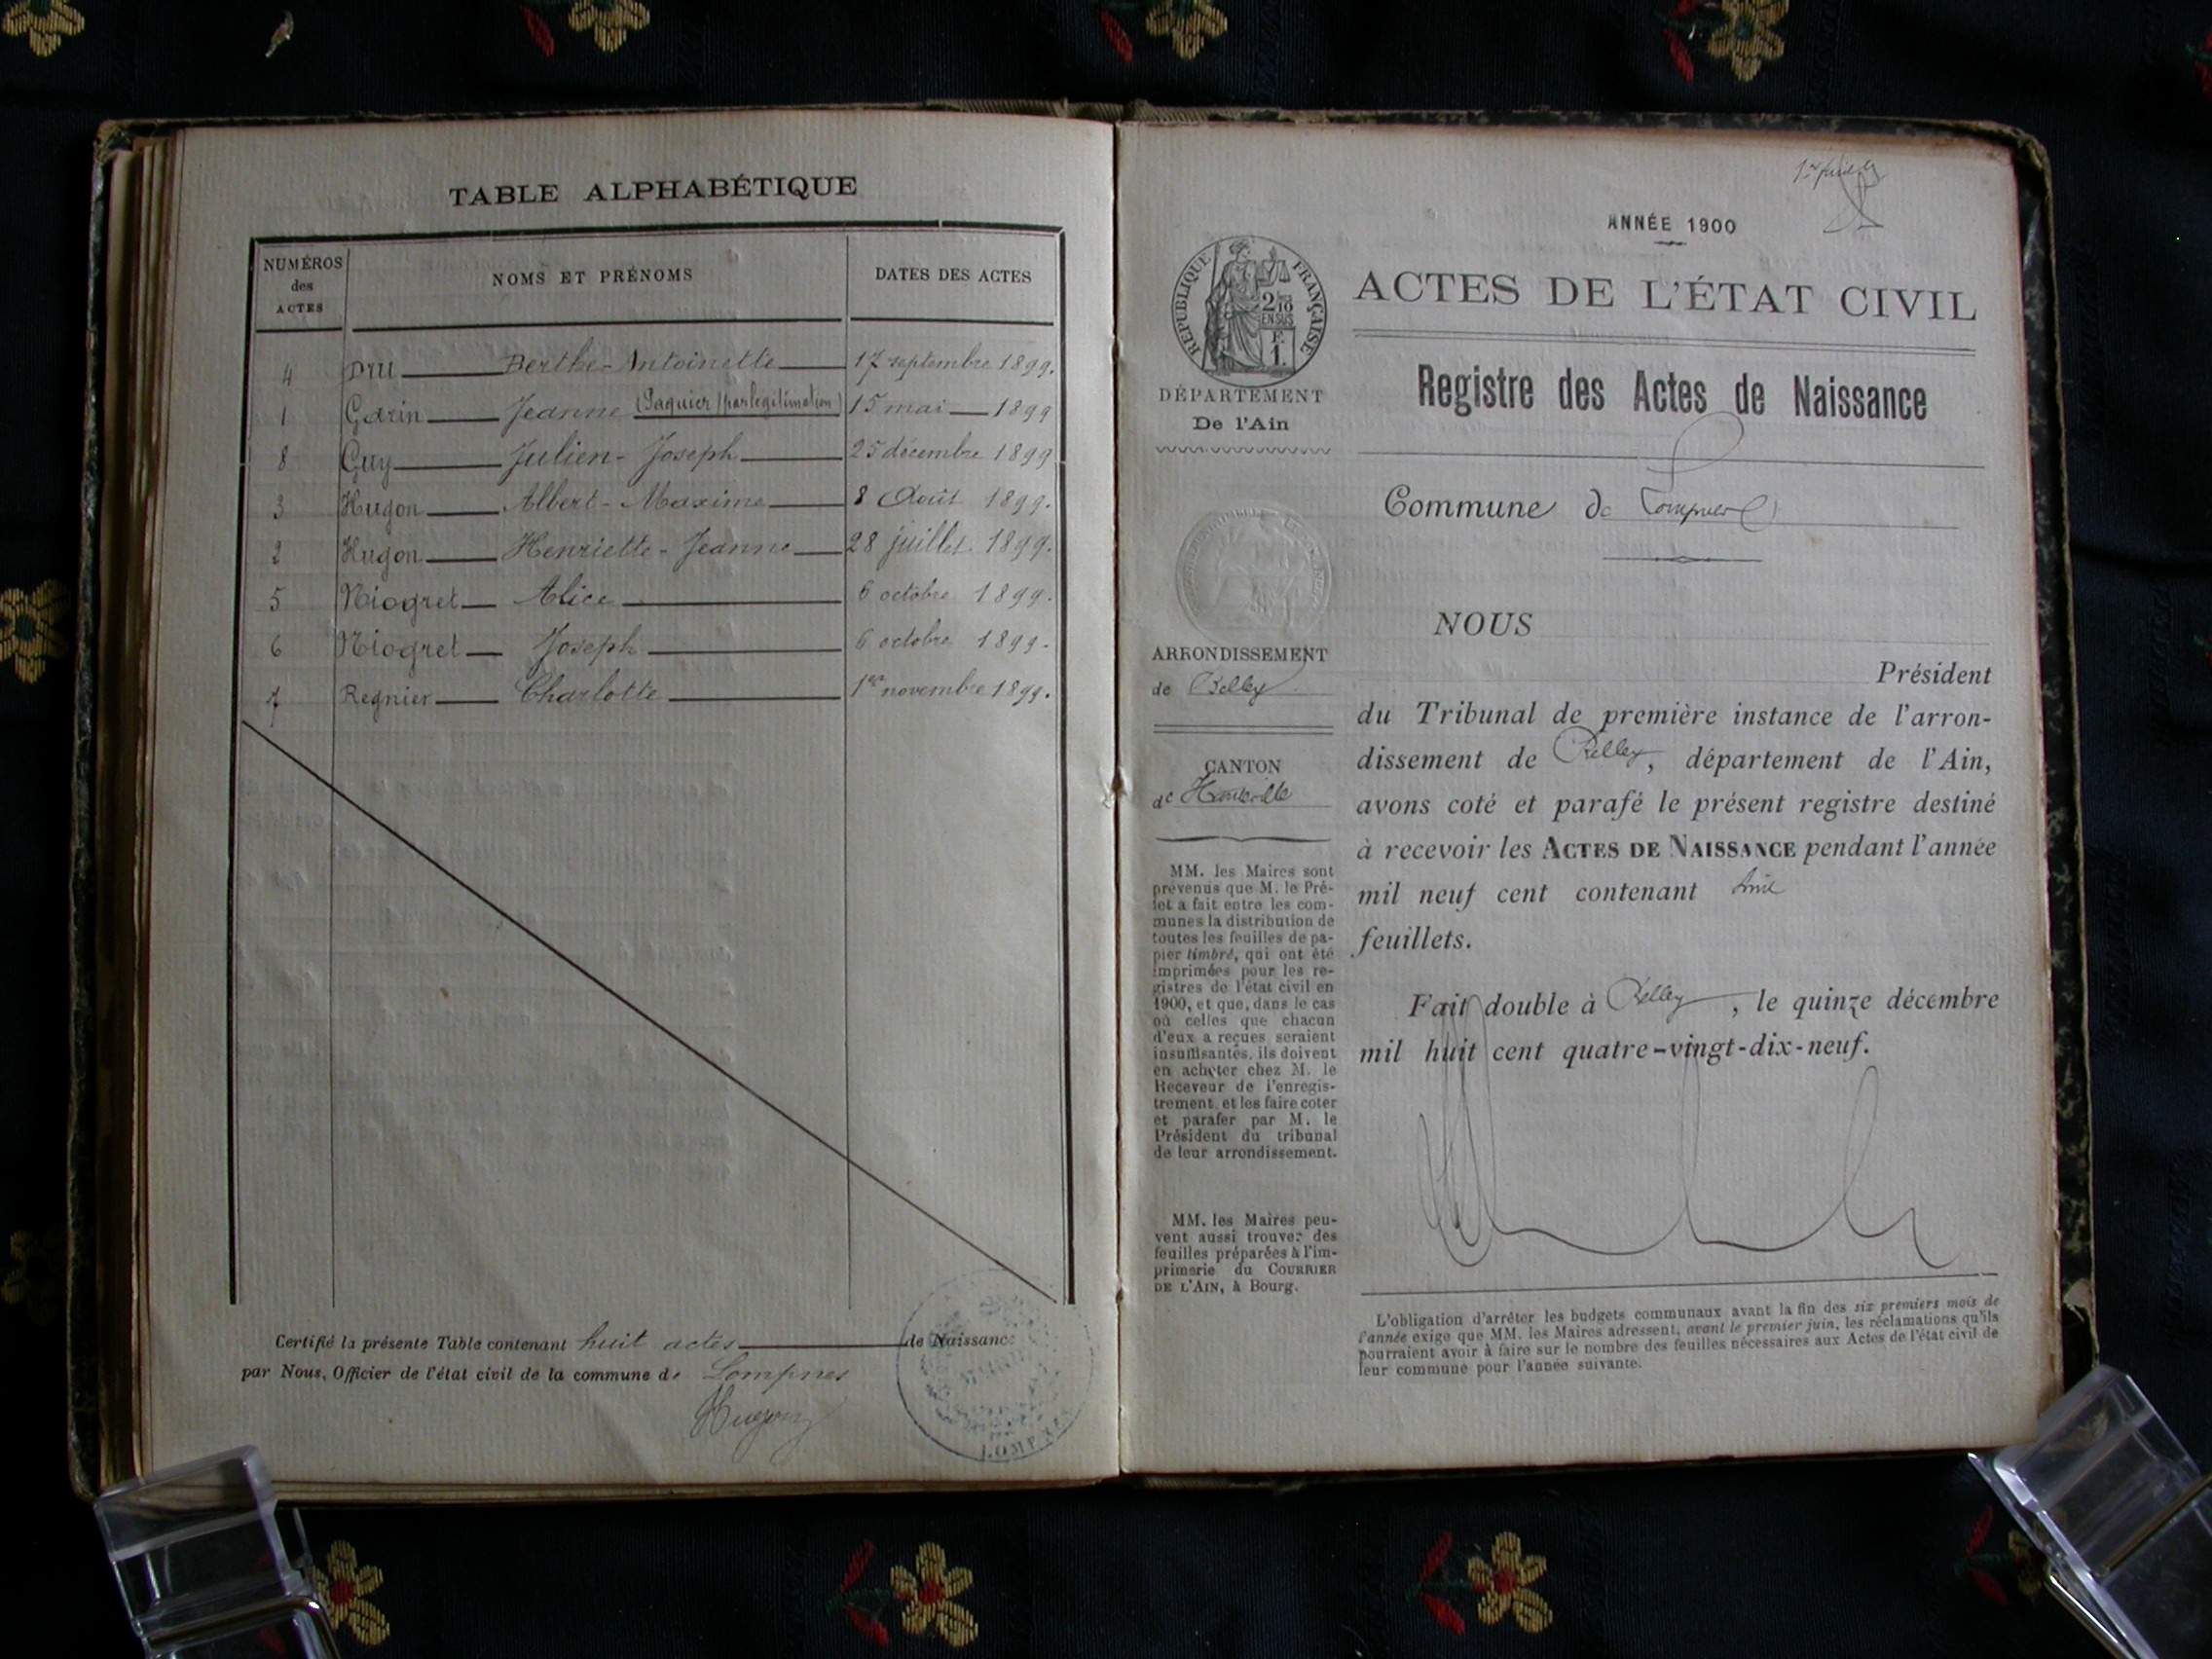 TABLE ALPHABÉTIQUE
NUMÉROS des ACTES | NOMS ET PRÉNOMS | DATES DES ACTES
4 Dru Berthe-Antoinette 17 septembre 1899.
1 Garin Jeanne (Jaquier par légitimation) 15 mai 1899
8 Guy Julien-Joseph 25 décembre 1899
3 Hugon Albert-Maxime 8 Août 1899.
2 Hugon Henriette-Jeanne 28 juillet 1899.
5 Niogret Alice 6 octobre 1899.
6 Niogret Joseph 6 octobre 1899.
7 Regnier Charlotte 1er novembre 1899.
Certifié la présente Table contenant huit actes de Naissance
par Nous, Officier de l'état civil de la commune de Lompnes
Hugon
LOMPNES
ANNÉE 1900
RÉPUBLIQUE FRANÇAISE
2/10
EN SUS
F.
1.
DÉPARTEMENT
De l'Ain
ARRONDISSEMENT
de Belley
CANTON
de Hauteville
MM. les Maires sont
prévenus que M. le Pré-
fet a fait entre les com-
munes la distribution de
toutes les feuilles de pa-
pier timbré, qui ont été
imprimées pour les re-
gistres de l'état civil en
1900, et que, dans le cas
où celles que chacun
d'eux a reçues seraient
insuffisantes, ils doivent
en acheter chez M. le
Receveur de l'enregis-
trement, et les faire coter
et parafer par M. le
Président du tribunal
de leur arrondissement.
MM. les Maires peu-
vent aussi trouver des
feuilles préparées à l'im-
primerie du COURRIER
DE L'AIN, à Bourg.
ACTES DE L'ÉTAT CIVIL
Registre des Actes de Naissance
Commune de Lompnes
NOUS
Président
du Tribunal de première instance de l'arron-
dissement de Belley, département de l'Ain,
avons coté et parafé le présent registre destiné
à recevoir les ACTES DE NAISSANCE pendant l'année
mil neuf cent contenant
feuillets.
Fait double à Belley, le quinze décembre
mil huit cent quatre-vingt-dix-neuf.
L'obligation d'arrêter les budgets communaux avant la fin des six premiers mois de
l'année exige que MM. les Maires adressent, avant le premier juin, les réclamations qu'ils
pourraient avoir à faire sur le nombre des feuilles nécessaires aux Actes de l'état civil de
leur commune pour l'année suivante.